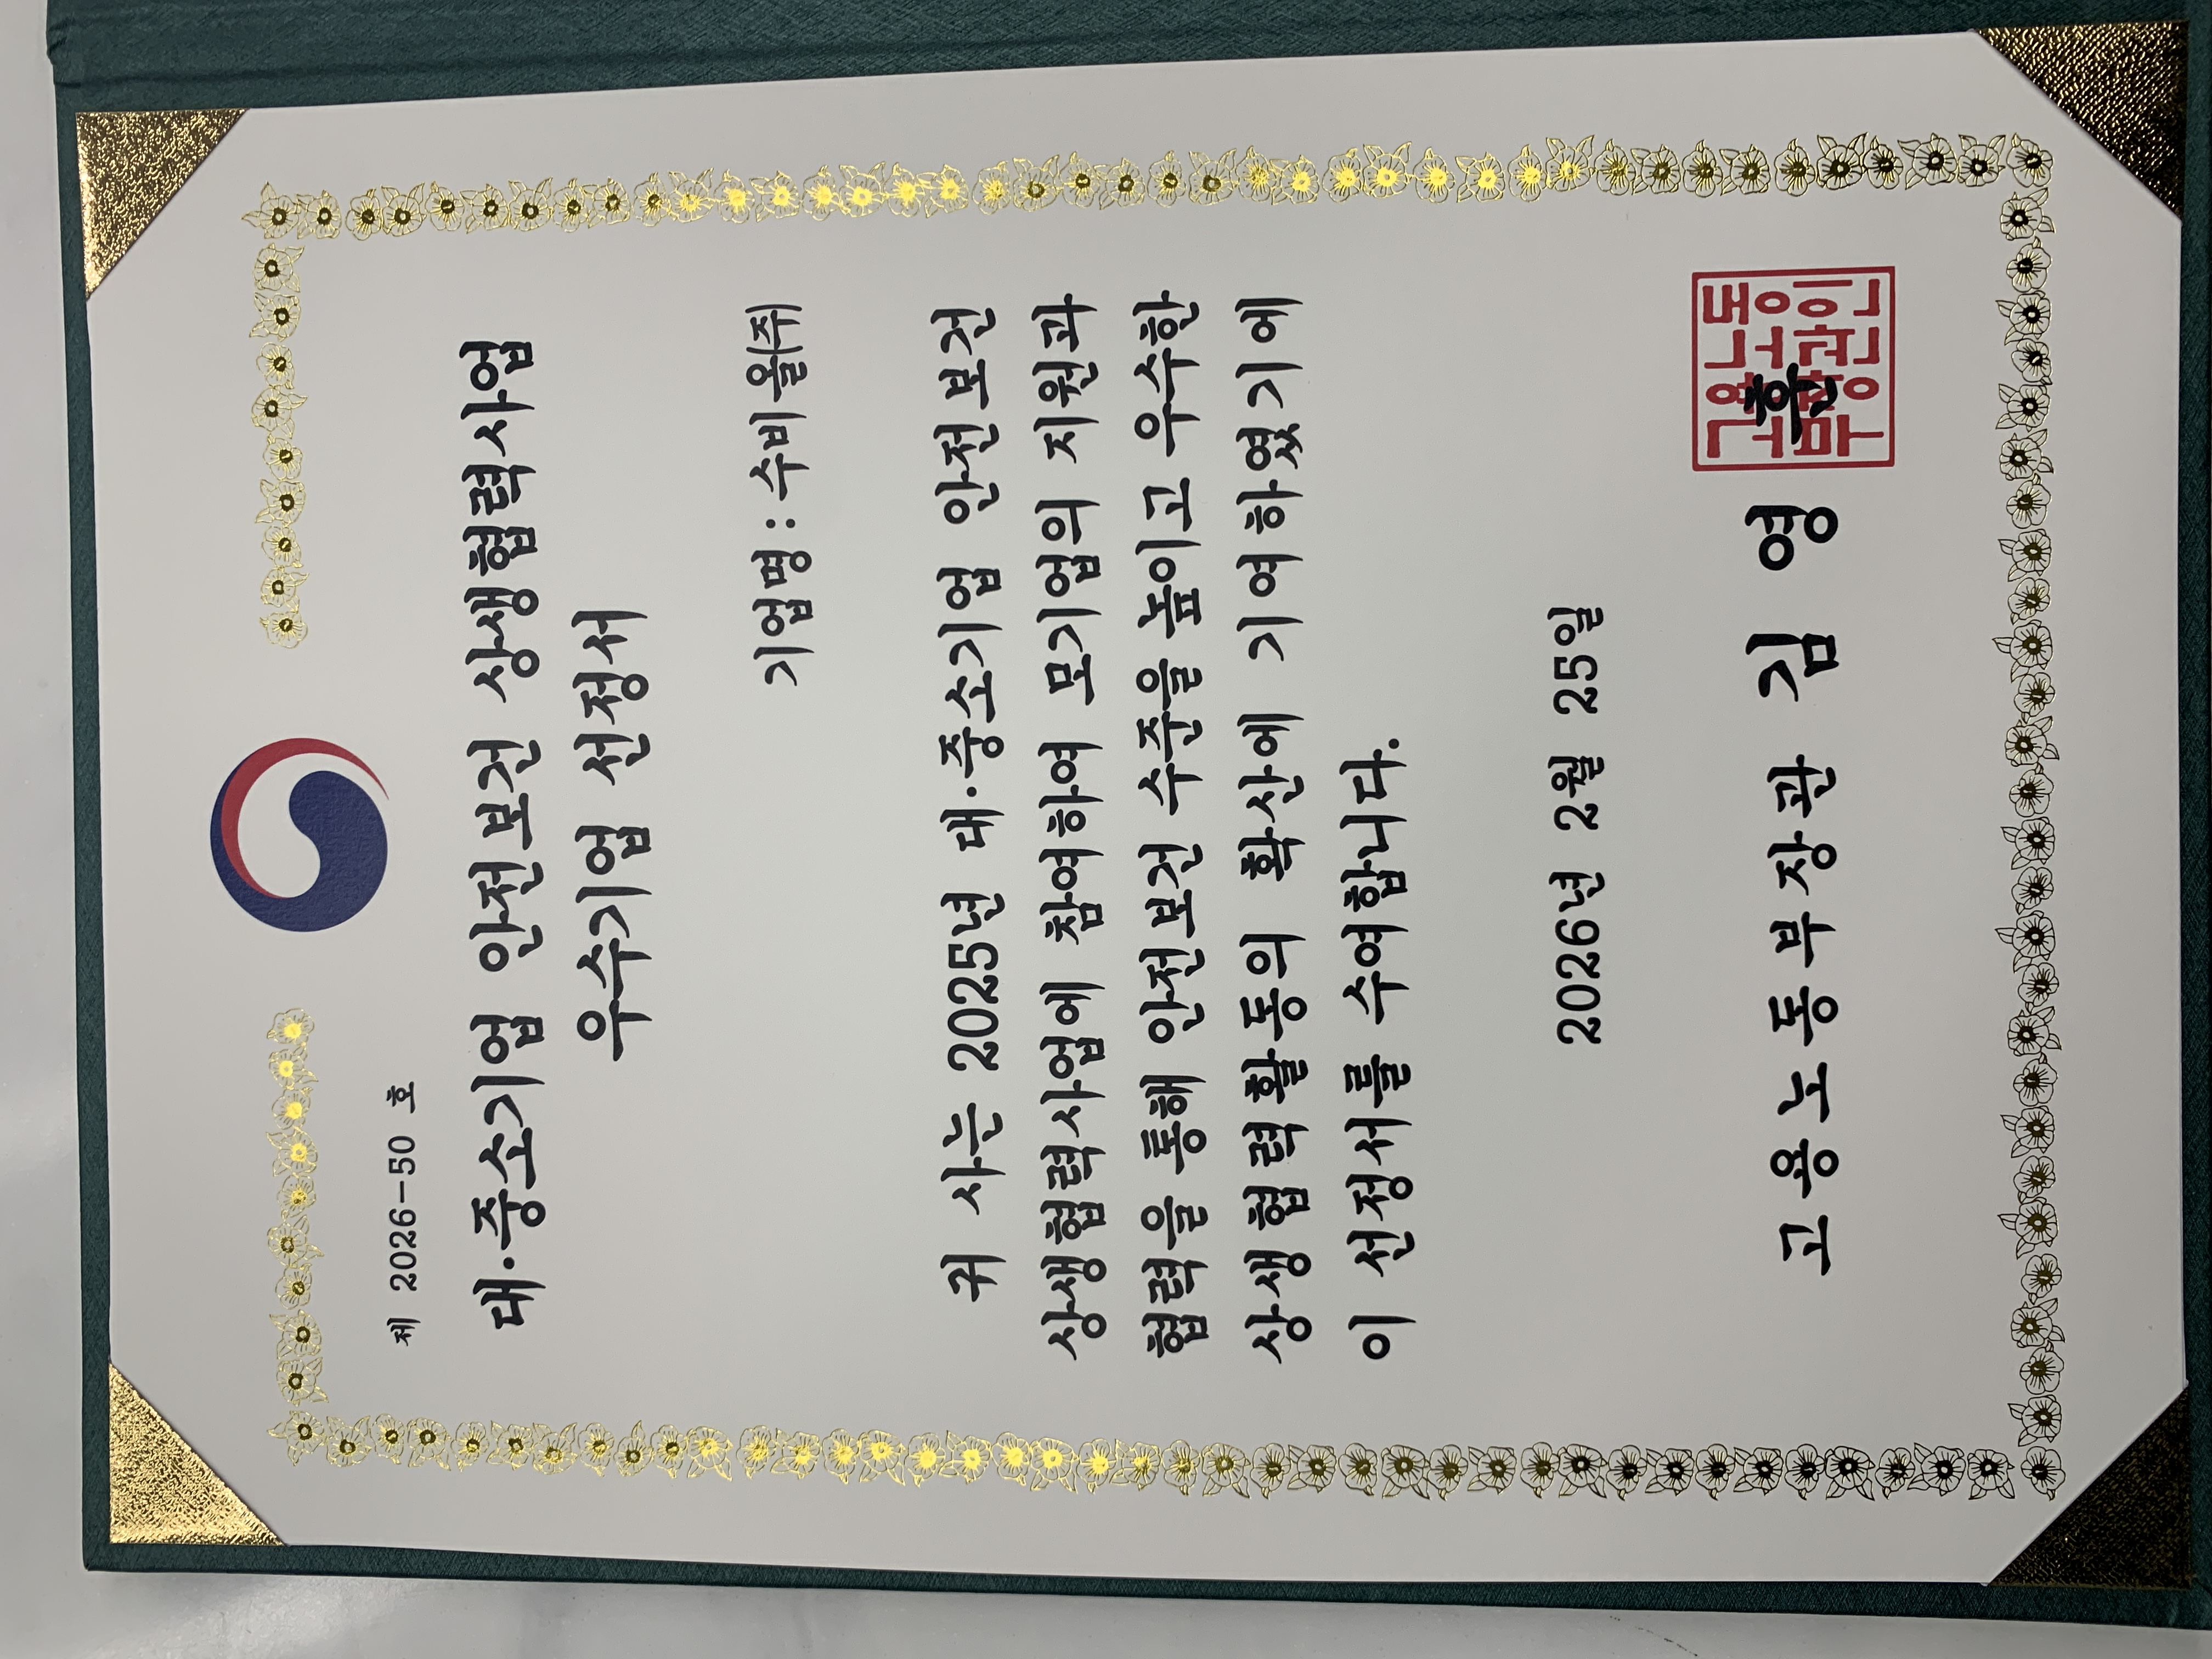 제 2026-50 호
대·중소기업 안전보건 상생협력사업
우수기업 선정서
기업명 : 수비올(주)
귀 사는 2025년 대·중소기업 안전보건
상생협력사업에 참여하여 모기업의 지원과
협력을 통해 안전보건 수준을 높이고 우수한
상생협력활동의 확산에 기여하였기에
이 선정서를 수여합니다.
2026년 2월 25일
고용노동부장관 김 영 훈
고용노동
부장관인